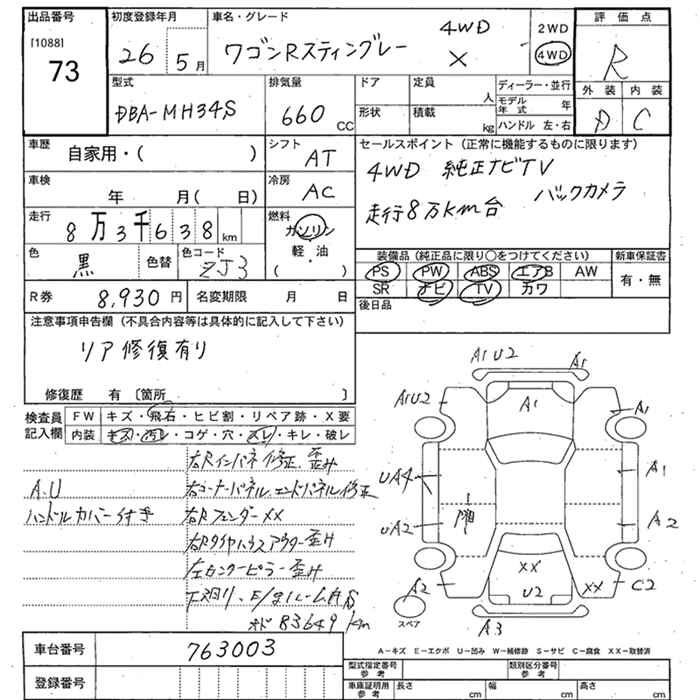 出品番号
[1088]
73
初度登録年月
26 5 月
車名・グレード
ワゴンRスティングレー
4WD
X
2WD
4WD
評価点
R
外装 内装
D C
型式
DBA-MH34S
排気量
660
CC
ドア
定員
人
形状
積載
kg
ディーラー・並行
モデル年式 年
ハンドル 左・右
車歴
自家用・( )
シフト
AT
車検
年 月( 日)
冷房
AC
走行
8 万 3 千 6 3 8 km
燃料
ガソリン
軽・油
( )
色
黒
色替
色コード
ZJ3
セールスポイント(正常に機能するものに限ります)
4WD 純正ナビTV
バックカメラ
走行8万km台
装備品(純正品に限り○をつけてください)
新車保証書
PS PW ABS エアB AW
有・無
SR ナビ TV カワ
後日品
R券 8,930 円
名変期限 月 日
注意事項申告欄(不具合内容等は具体的に記入して下さい)
リア修復有り
修復歴 有 〔箇所 〕
検査員記入欄
FW キズ・飛石・ヒビ割・リペア跡・X要
内装 キズ・汚レ・コゲ・穴・スレ・キレ・破レ
右Rインパネ修正、歪み
A.U
右コーナーパネル、エンドパネル修正
ハンドルカバー付き
右Rフェンダー XX
右Rタイヤハウスアウター歪み
左センターピラー歪み
下廻り、E/gルームA.S
オド 83649km
A1U2
A1
A1U2
A1
A1
UA4
A1
UA2
凹
A2
XX
U2
A2
XX
C2
A3
スペア
A-キズ E-エクボ U-凹み W-補修跡 S-サビ C-腐食 XX-取替済
車台番号
763003
登録番号
型式指定番号
参考
類別区分番号
参考
車庫証明用
参考
長さ cm
幅 cm
高さ cm